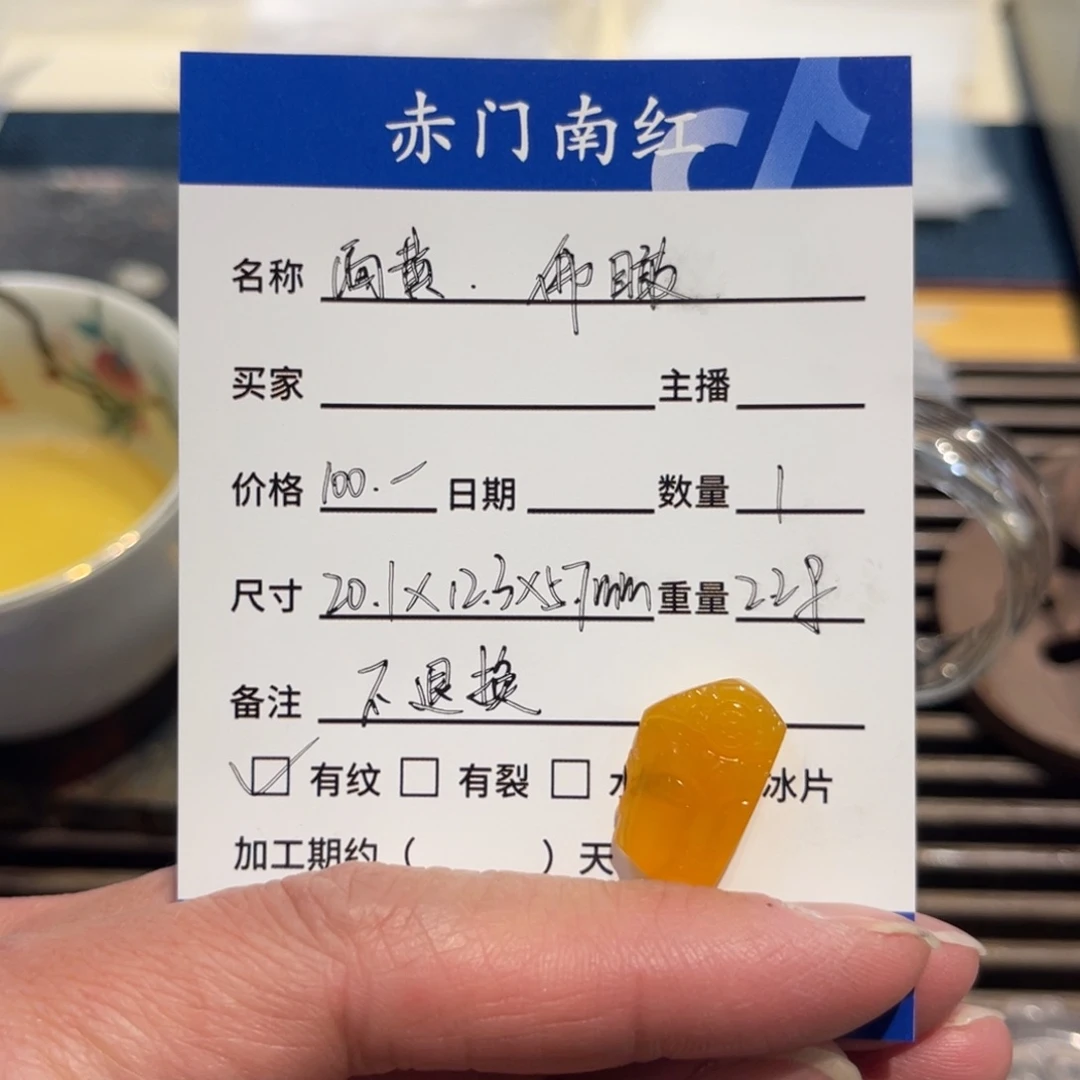 赤门南红
名称 雨黄.
买家 主播
价格 100.- 日期 数量 1
尺寸 20.1×12.3×5.7mm 重量 2.2g
备注 不退换
有纹 有裂 冰片
加工期约( )天